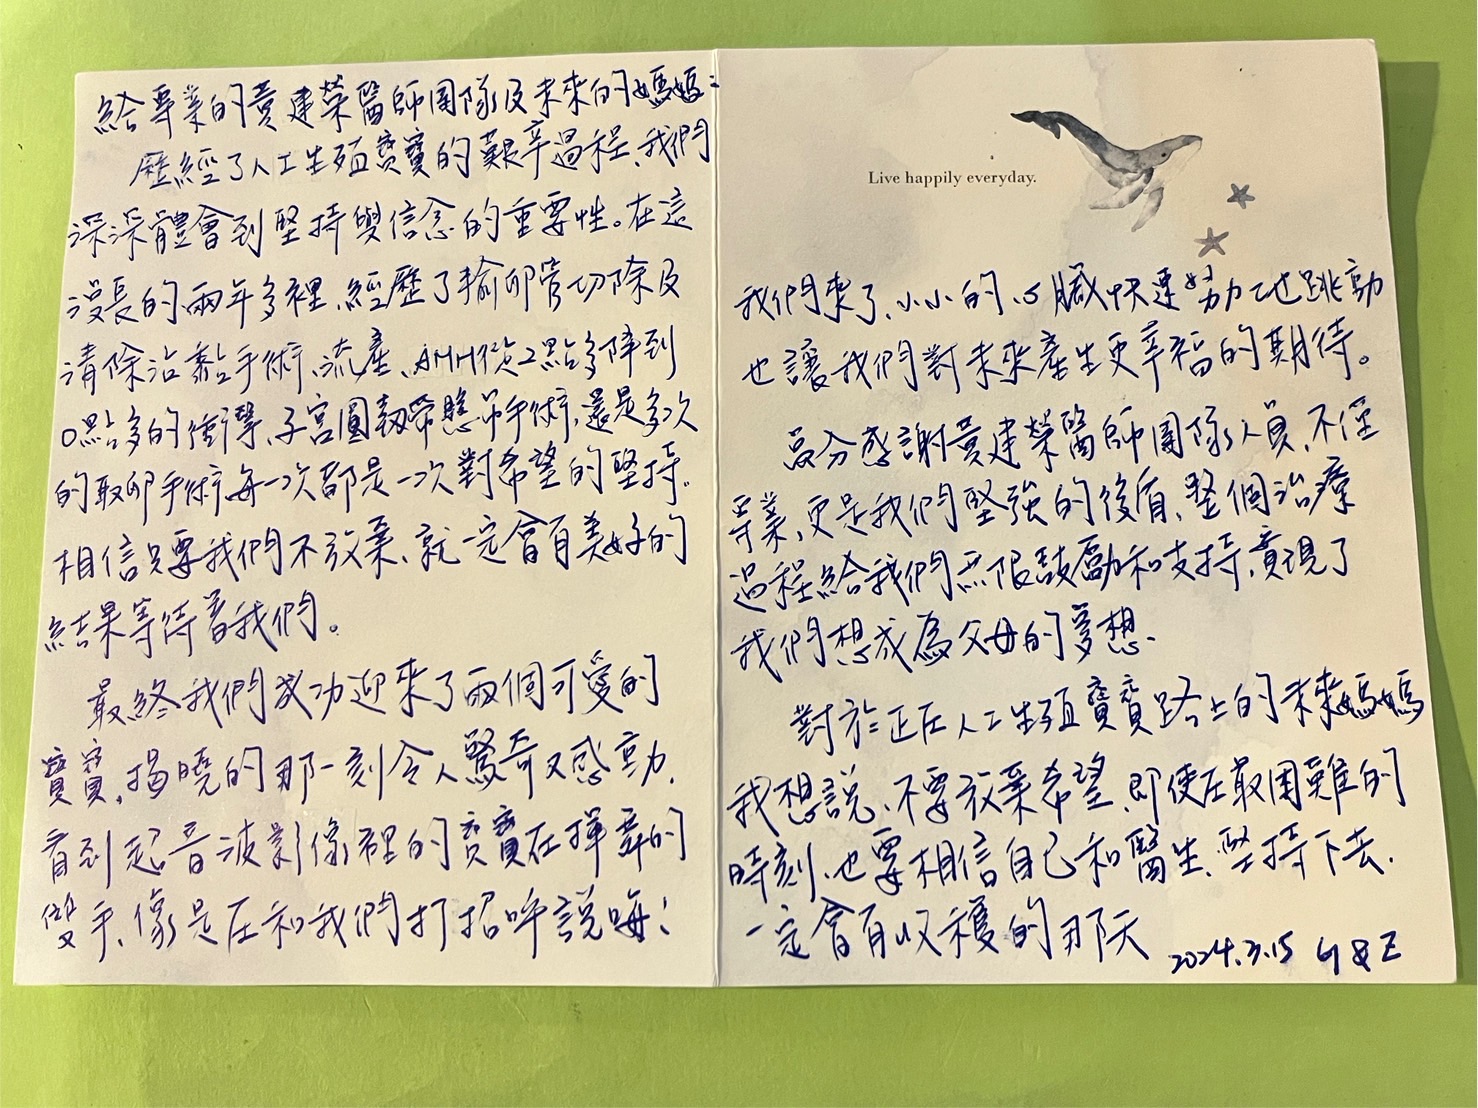 給專業的黃建榮醫師團隊及未來的媽媽：
歷經了人工生殖寶寶的艱辛過程、我們
深深體會到堅持與信念的重要性。在這
漫長的兩年多裡、經歷了輸卵管切除及
清除沾黏手術、流產、AMH從2點多降到
0點多的衝擊、子宮圓韌帶懸吊手術、還是多次
的取卵手術、每一次都是一次對希望的堅持。
相信只要我們不放棄、就一定會有美好的
結果等待著我們。
最終我們成功迎來了兩個可愛的
寶寶、揭曉的那一刻令人驚奇又感動、
看到超音波影像裡的寶寶在揮舞的
雙手、像是在和我們打招呼說嗨！
Live happily everyday.
我們來了、小小的心臟快速努力地跳動
也讓我們對未來產生更幸福的期待。
萬分感謝黃建榮醫師團隊人員、不僅
專業、更是我們堅強的後盾、整個治療
過程給我們無限鼓勵和支持、實現了
我們想成為父母的夢想、
對於正在人工生殖寶寶路上的未來媽媽
我想說、不要放棄希望、即使在最困難的
時刻、也要相信自己和醫生、堅持下去、
一定會有收穫的那天
2024.3.15 G & E